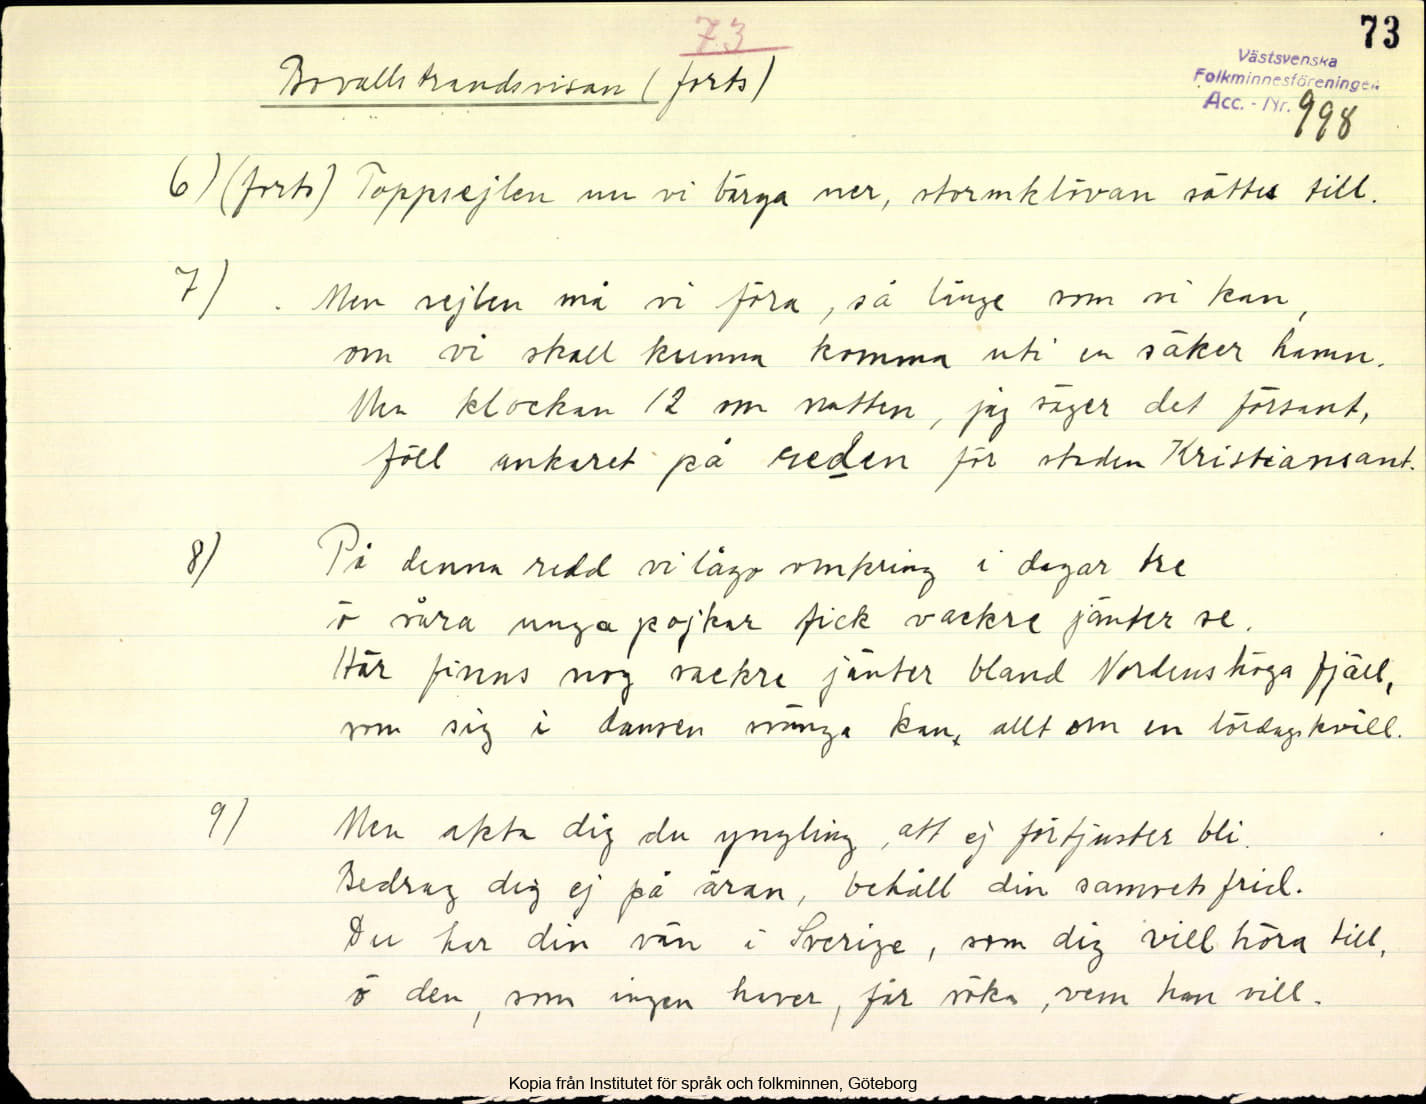 73
73
Västsvenska
Folkminnesföreningen
Acc. - Nr. 998
Bovallstrandsvisan (forts)
6) (forts) Toppsejlen nu vi bärga ner, stormklövan sättes till.
7) Men sejlen må vi föra, så länge som vi kan,
om vi skall kunna komma uti en säker hamn.
Men klockan 12 om natten, jag säger det försant,
föll ankaret på reden för staden Kristiansant.
8) På denna redd vi lågo omkring i dagar tre
ö våra unga pojkar fick vackre jänter se.
Här finns nog vackre jänter bland Nordens höga fjäll,
som sig i dansen svänga kan, allt om en lördagskväll.
9) Men akta dig du yngling, att ej förtjuster bli.
Bedrag dig ej på äran, behåll din samvetsfrid.
Du har din vän i Sverige, som dig vill höra till,
ö den, som ingen haver, får söka, vem han vill.
Kopia från Institutet för språk och folkminnen, Göteborg